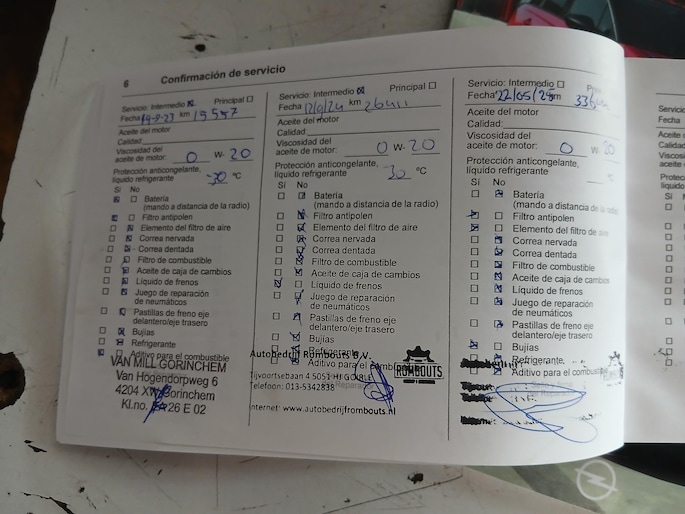 6 Confirmación de servicio
Servicio: Intermedio Principal
Fecha 19-9-23 km 19557
Aceite del motor
Calidad
Viscosidad del
aceite de motor: 0 W- 20
Protección anticongelante,
líquido refrigerante -30 °C
Sí No
Batería
(mando a distancia de la radio)
Filtro antipolen
Elemento del filtro de aire
Correa nervada
Correa dentada
Filtro de combustible
Aceite de caja de cambios
Líquido de frenos
Juego de reparación
de neumáticos
Pastillas de freno eje
delantero/eje trasero
Bujías
Refrigerante
Aditivo para el combustible
VAN MILL GORINCHEM
Van Hogendorpweg 6
4204 Gorinchem
Kl.no. 26 E 02
Servicio: Intermedio Principal
Fecha km 26411
Aceite del motor
Calidad
Viscosidad del
aceite de motor: 0 W- 20
Protección anticongelante,
líquido refrigerante -30 °C
Sí No
Batería
(mando a distancia de la radio)
Filtro antipolen
Elemento del filtro de aire
Correa nervada
Correa dentada
Filtro de combustible
Aceite de caja de cambios
Líquido de frenos
Juego de reparación
de neumáticos
Pastillas de freno eje
delantero/eje trasero
Bujías
Refrigerante
Aditivo para el combustible
Autobedrijf Rombouts B.V.
Tijvoortsebaan 4 5051 HJ GOIRLE
Telefoon: 013-5342838
Internet: www.autobedrijfrombouts.nl
ROMBOUTS
Servicio: Intermedio
Fecha 22/05/25 km
Aceite del motor
Calidad:
Viscosidad del
aceite de motor: 0 W-
Protección anticongelante,
líquido refrigerante
Sí No
Batería
(mando a distancia de la radio)
Filtro antipolen
Elemento del filtro de aire
Correa nervada
Correa dentada
Filtro de combustible
Aceite de caja de cambios
Líquido de frenos
Juego de reparación
de neumáticos
Pastillas de freno eje
delantero/eje trasero
Bujías
Refrigerante
Aditivo para el combustible
Servicio
Fecha
Aceite
Calidad